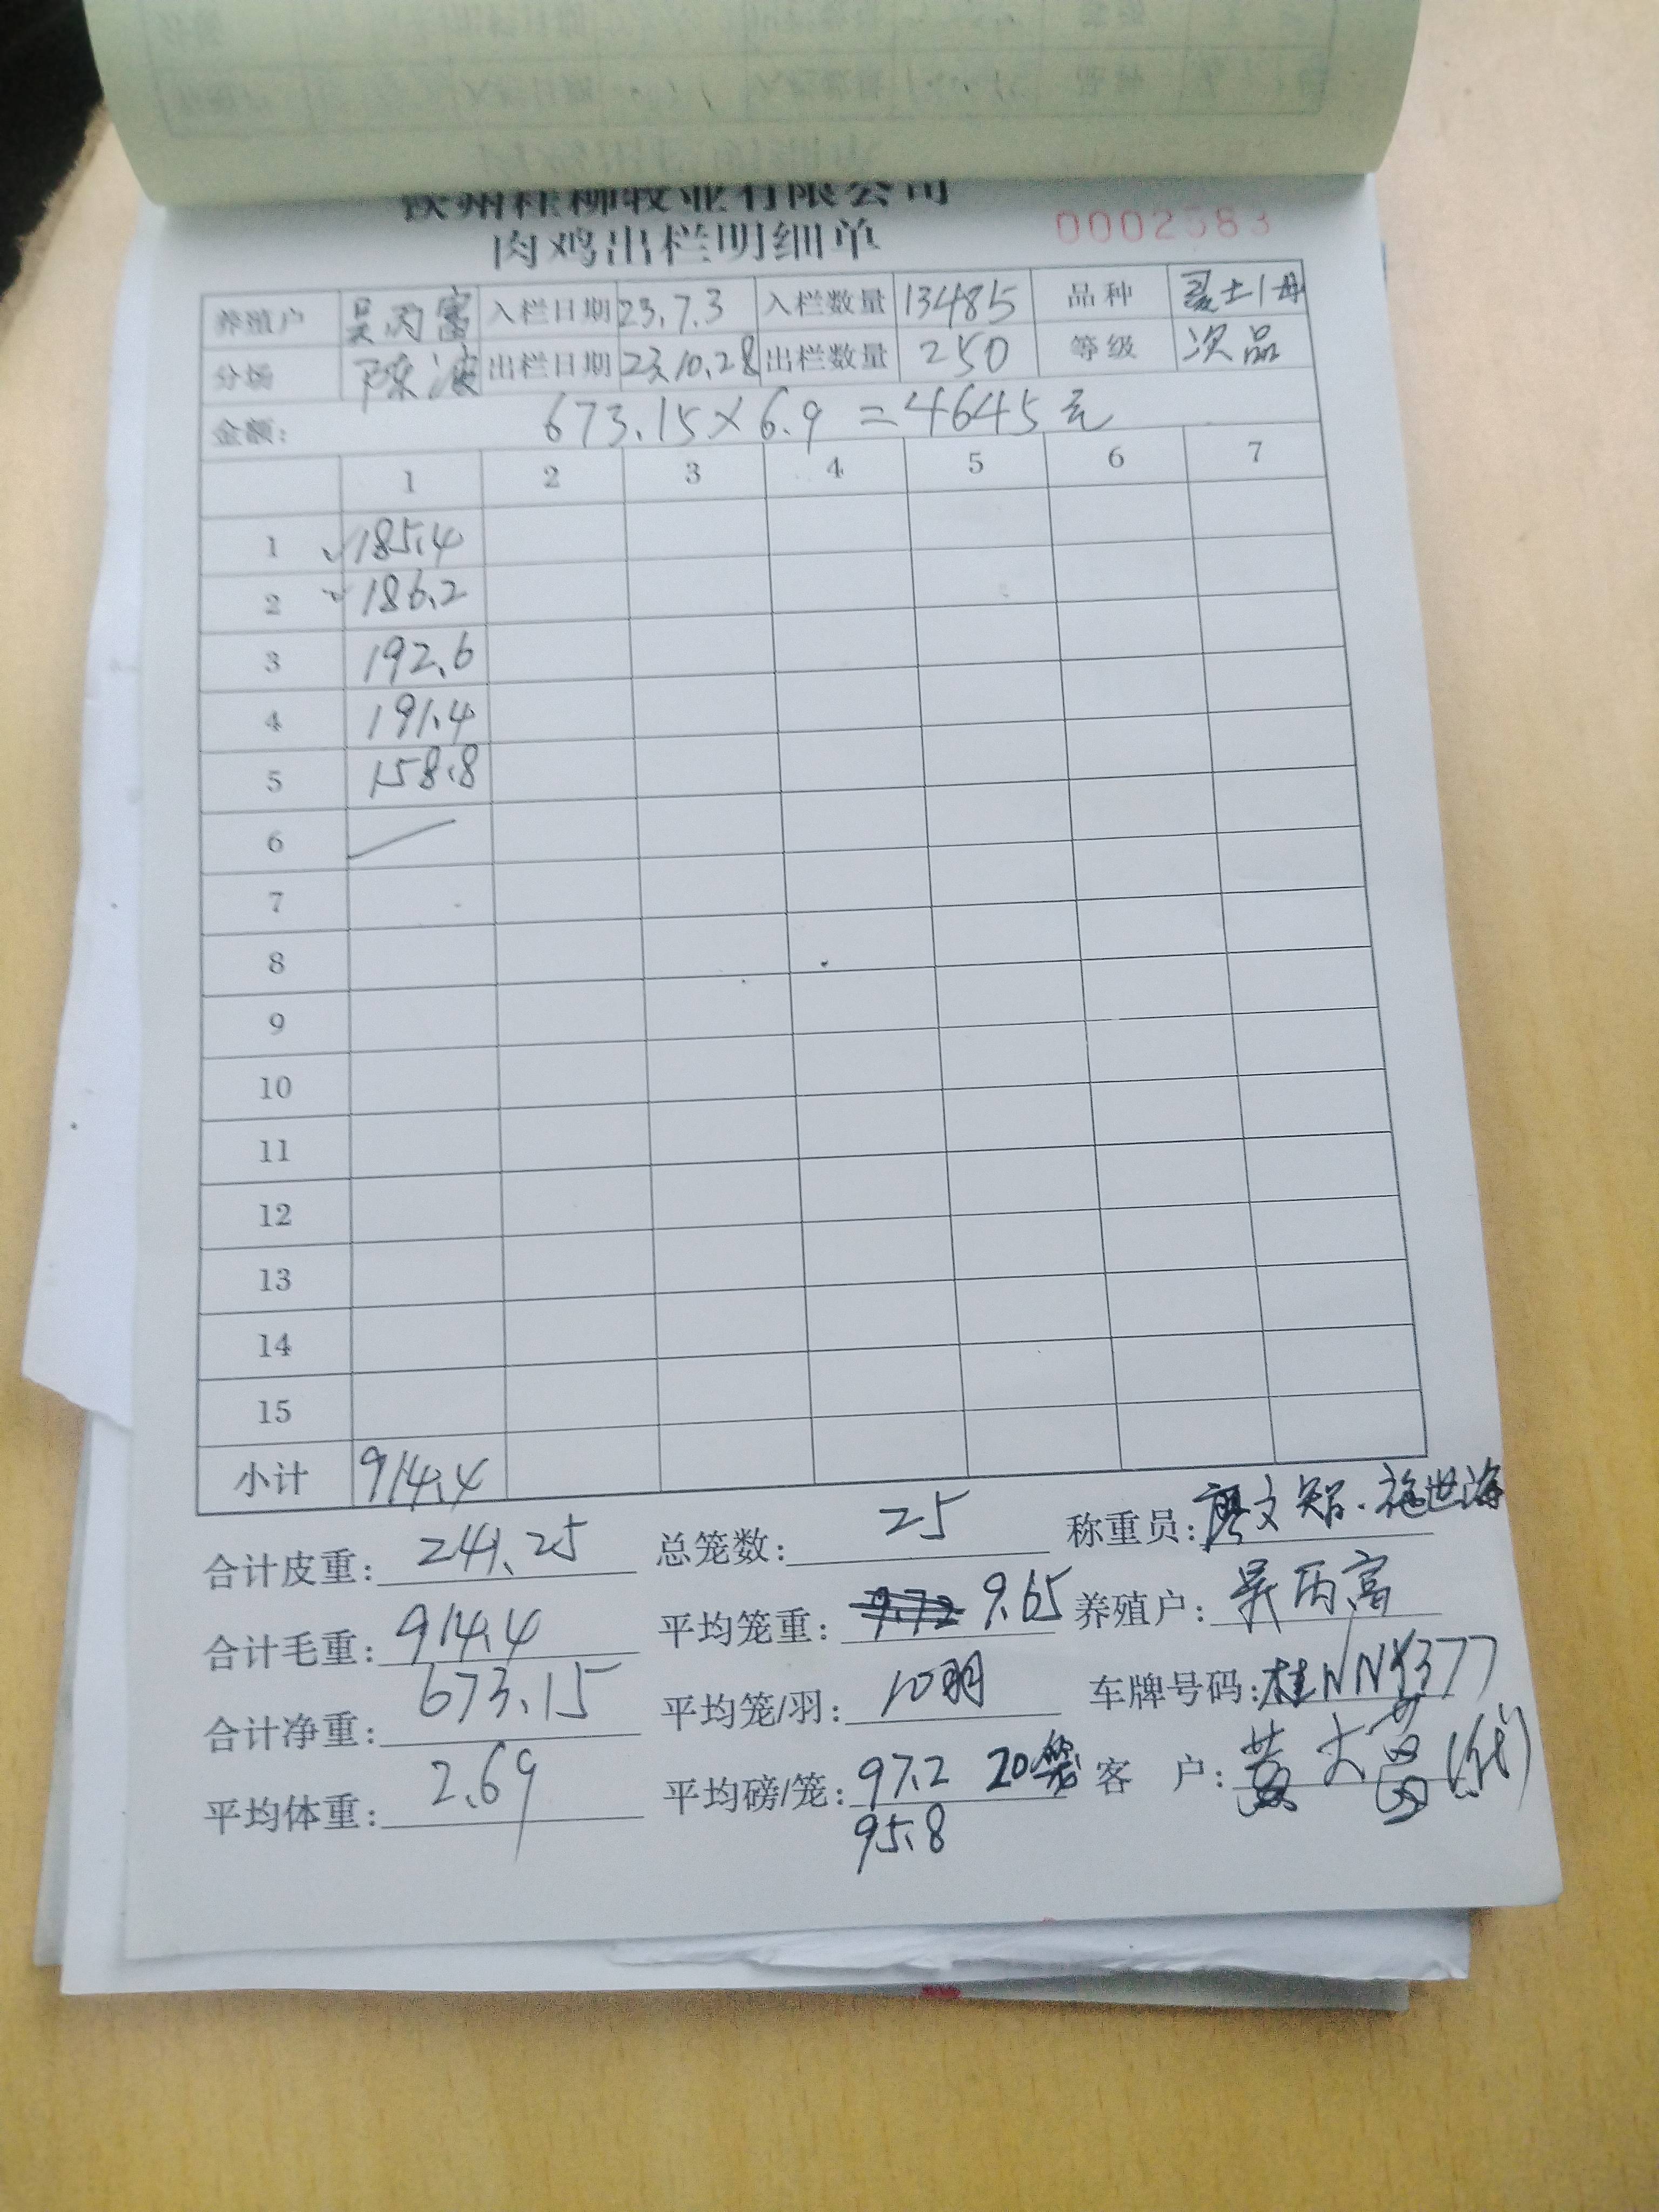 钦州桂柳牧业有限公司
肉鸡出栏明细单 0002583
养殖户 吴丙富 入栏日期 23.7.3 入栏数量 13485 品种
分场 陈波 出栏日期 23.10.28 出栏数量 250 等级 次品
金额: 673.15×6.9=4645元
1 2 3 4 5 6 7
1 √185.4
2 √186.2
3 192.6
4 191.4
5 158.8
6
7
8
9
10
11
12
13
14
15
小计 914.4
合计皮重: 241.25 总笼数: 25 称重员: 廖文智.施世海
合计毛重: 914.4 平均笼重: 9.72 9.65 养殖户: 吴丙富
合计净重: 673.15 平均笼/羽: 10羽 车牌号码: 桂NNY377
平均体重: 2.69 平均磅/笼: 97.2 20笼 客 户: 黄大 (代)
95.8